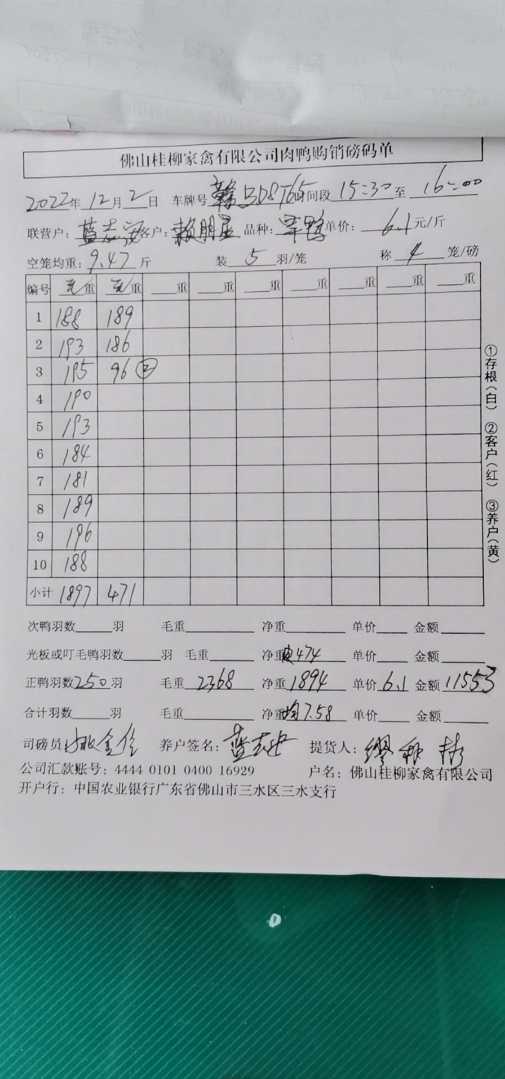 佛山桂柳家禽有限公司肉鸭购销磅码单
2022年12月2日 车牌号 赣 D8765 时间段 15:30 至 16:00
联营户: 蓝志安 客户: 赖朋星 品种: 旱鸭 单价: 6.1元/斤
空笼均重: 9.47斤 装 5 羽/笼 称 4 笼/磅
编号 毛重 毛重 重 重 重 重 重 重 重
1 188 189
2 193 186
3 195 96 ②
4 190
5 193
6 184
7 181
8 189
9 196
10 188
小计 1897 471
①存根(白) ②客户(红) ③养户(黄)
次鸭羽数 羽 毛重 净重 单价 金额
光板或叮毛鸭羽数 羽 毛重 净重 474 单价 金额
正鸭羽数250羽 毛重 2368 净重 1894 单价 6.1 金额 11553
合计羽数 羽 毛重 净重 均7.58 单价 金额
司磅员 养户签名: 蓝志安 提货人:
公司汇款账号: 4444 0101 0400 16929 户名: 佛山桂柳家禽有限公司
开户行: 中国农业银行广东省佛山市三水区三水支行